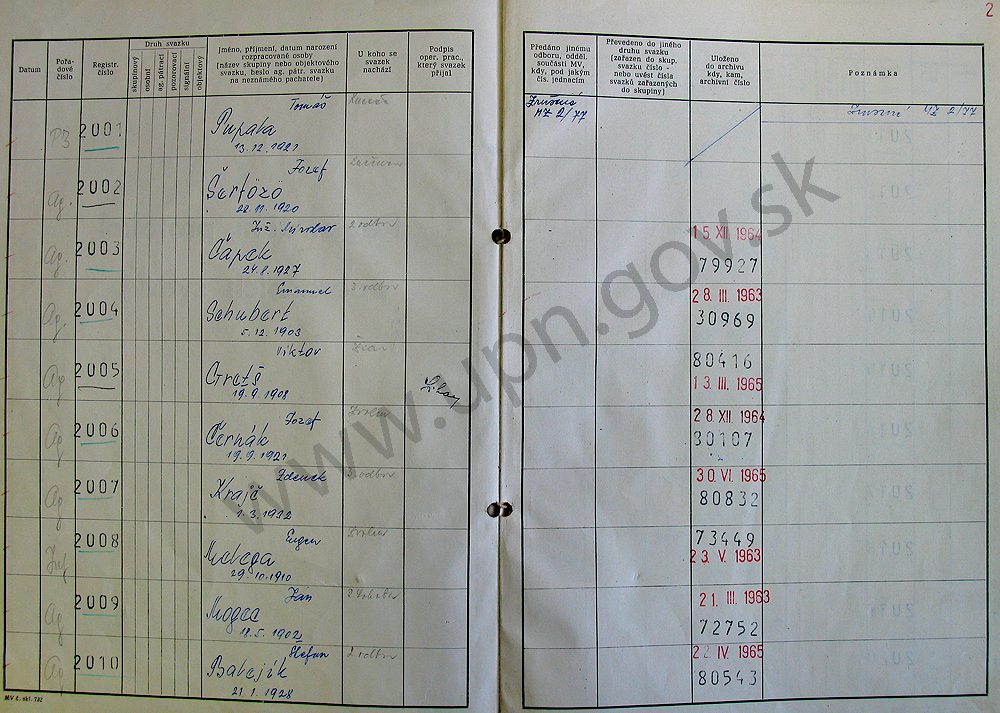 2
Datum
Pořa-
dové
číslo
Registr.
číslo
Druh svazku
skupinový
osobní
ag. pátrací
pozorovací
signální
objektový
Jméno, příjmení, datum narození
rozpracované osoby
(název skupiny nebo objektového
svazku, heslo ag. pátr. svazku
na neznámého pachatele)
U koho se
svazek
nachází
Podpis
oper. prac.,
který svazek
přijal
Předáno jinému
odboru, odděl,
součásti MV,
kdy, pod jakým
čís. jednacím
Převedeno do jiného
druhu svazku
(zařazen do skup.
svazku číslo -
nebo uvést čísla
svazků zařazených
do skupiny)
Uloženo
do archivu
kdy, kam,
archivní číslo
Poznámka
2001
Tomáš
Pupala
13.12.1921
NZ 2/77
NZ 2/77
Ag.
2002
Jozef
Šerfözö
28.11.1920
Ag.
2003
Inž.
Čápek
24.8.1927
2. odbor
15 XII 1964
79927
Ag.
2004
Emanuel
Schubert
5.12.1903
3. odbor
28. III. 1963
30969
Ag
2005
Viktor
Greťš
19.9.1908
80416
13. III. 1965
Ag
2006
Jozef
Černák
19.9.1921
Zvolen
28 XII. 1964
30107
Ag
2007
Zdenek
Krajč
1.3.1932
odbor
30 VI. 1965
80832
Inf.
2008
Eugen
Medega
29.10.1910
Zvolen
73449
23. V. 1963
Ag
2009
Jan
18.5.1902
21. III. 1963
72752
Ag
2010
Štefan
Balejík
21.1.1928
2 odbor
22 IV. 1965
80543
MV č. skl. 732
www.upn.gov.sk